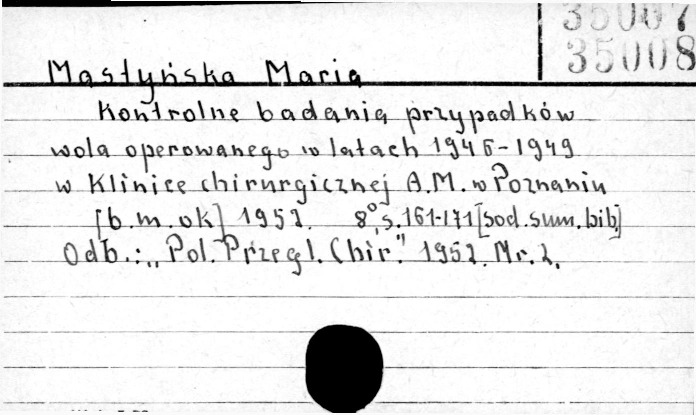 35007
35008
Mastyńska Maria
Kontrolne badania przypadków
wola operowanego w latach 1945-1949
w Klinice chirurgicznej A.M. w Poznaniu
[b.m. ok] 1952. 8°, s. 161-171 [sod. sum. bib]
Odb.: "Pol. Przegl. Chir." 1952. Nr. 2.